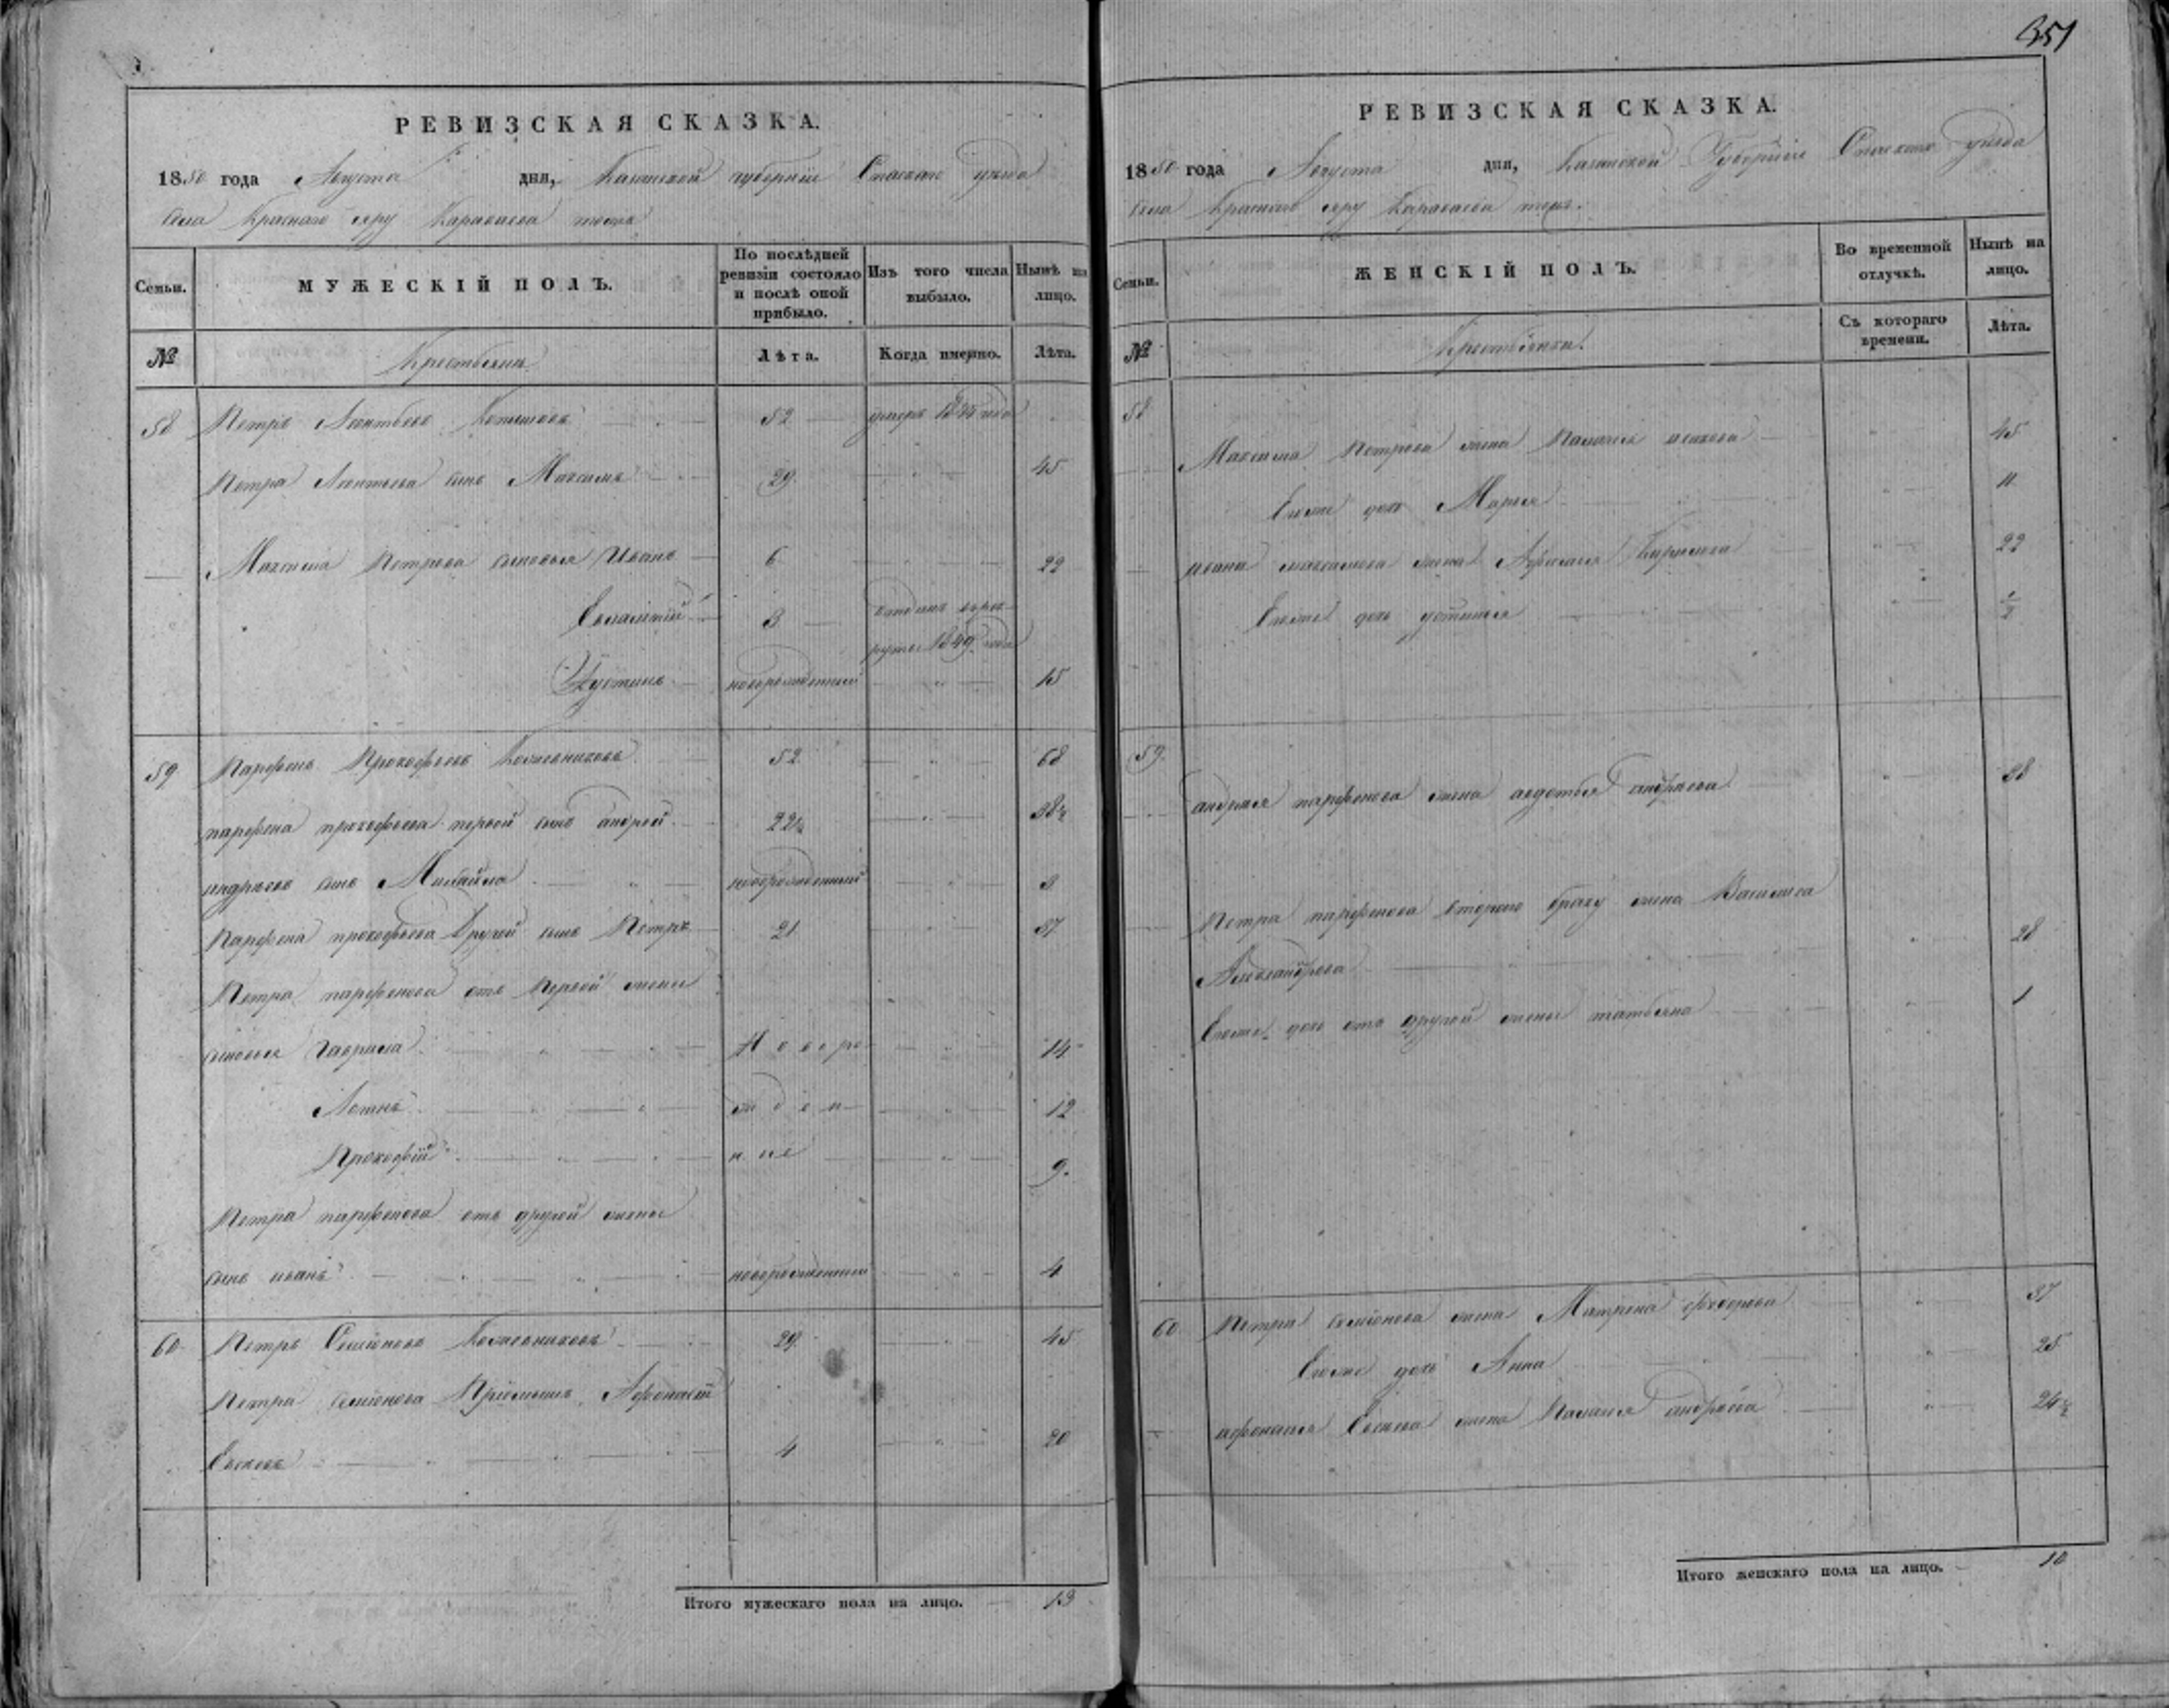 351
РЕВИЗСКАЯ СКАЗКА.
1850 года Августа дня, Казанской губернии Спаскаго уезда
села Краснаго яру Караваева тожъ
Семьи. МУЖЕСКІЙ ПОЛЪ. По послѣдней ревизіи состояло и послѣ оной прибыло. Изъ того числа выбыло. Нынѣ на лицо.
№ Крестьяне Лѣта. Когда именно. Лѣта.
58 Петръ Леонтьевъ 52 умеръ
Петра Леонтьева сынъ Максимъ 29 45
Максима Петрова сыновья Иванъ 6 22
Евлампій 3 отданъ въ рек
руты 1849 года
Устинъ новорожденный 15
59 Парфенъ Прокофьевъ Кожевниковъ 52 68
парфена прокофьева первой сынъ андрей 22½ 38½
андреевъ сынъ Михайла новорожденный 3
Парфена прокофьева Другой сынъ Петръ 21 37
Петра парфенова отъ первой жены
сыновья Гаврила Новоро 14
жден 12
Прокофій ные 9
Петра парфенова отъ другой жены
сынъ иванъ новорожденный 4
60 Петръ Семіоновъ Кожевниковъ 29 45
Петра семіонова Пріемышъ Афонасій
4 20
Итого мужескаго пола на лицо. 13
РЕВИЗСКАЯ СКАЗКА.
1850 года Августа дня, Казанской Губерніи Спаскаго уезда
села Краснаго яру Караваева тожъ.
Семьи. ЖЕНСКІЙ ПОЛЪ. Во временной отлучкѣ. Нынѣ на лицо.
№ Крестьянки. Съ котораго времени. Лѣта.
58
Максима Петрова жена Палагея 45
Евоже дочь Марья 11
ивана максимова жена 22
Евоже дочь устинья ½
59
андрея парфенова жена авдотья андреева 38
Петра парфенова втораго браку жена Василиса
Александрова 28
Евоже дочь отъ другой жены татьяна 1
60 Петра семіонова жена Матрена федорова 37
Евоже дочь Анна 25
афонасья жена Палагея андреева 24½
Итого женскаго пола на лицо. 10